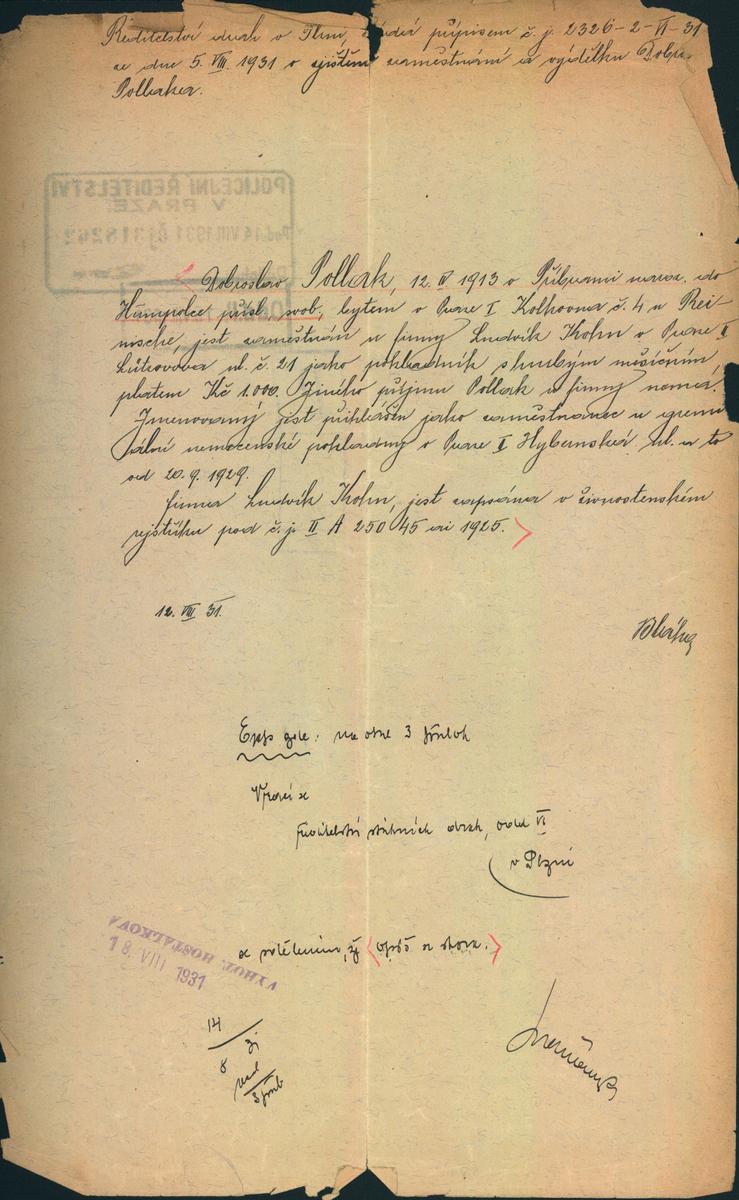 Ředitelství drah v Plzni, žádá přípisem č. j. 2326-2-VI-31
ze dne 5. VIII. 1931 o zjištění zaměstnání a výdělku Dobro.
Pollaka.
POLICEJNÍ ŘEDITELSTVÍ
V PRAZE.
Pod. 14 VIII. 1931 čj 318262
Dobroslav Pollak, 12. IV 1913 v Příbrami naroz. do
Humpolce přísl., svob., bytem v Praze I Kolkovna č. 4 u Rei
mische, jest zaměstnán u firmy Ludvík Kohn v Praze II
Lützovova ul. č. 21 jako pokladník s hrubým měsíčním
platem Kč 1.000. Jiného příjmu Pollak u firmy nemá.
Jmenovaný jest přihlášen jako zaměstnanec u gremi
ální nemocenské pokladny v Praze II Hybernská ul. a to
od 20. 9. 1929.
Firma Ludvík Kohn, jest zapsána v živnostenském
rejstříku pod č. j. II A 250 45 ai 1925.
12. VIII 31.
Bláha
na 3
Vrací se
ředitelství státních drah, odd VI
v Plzni
se sdělením, že opso se shora.
VYHOT. HOSTALKOVA
18. VIII 1931
14
8 31